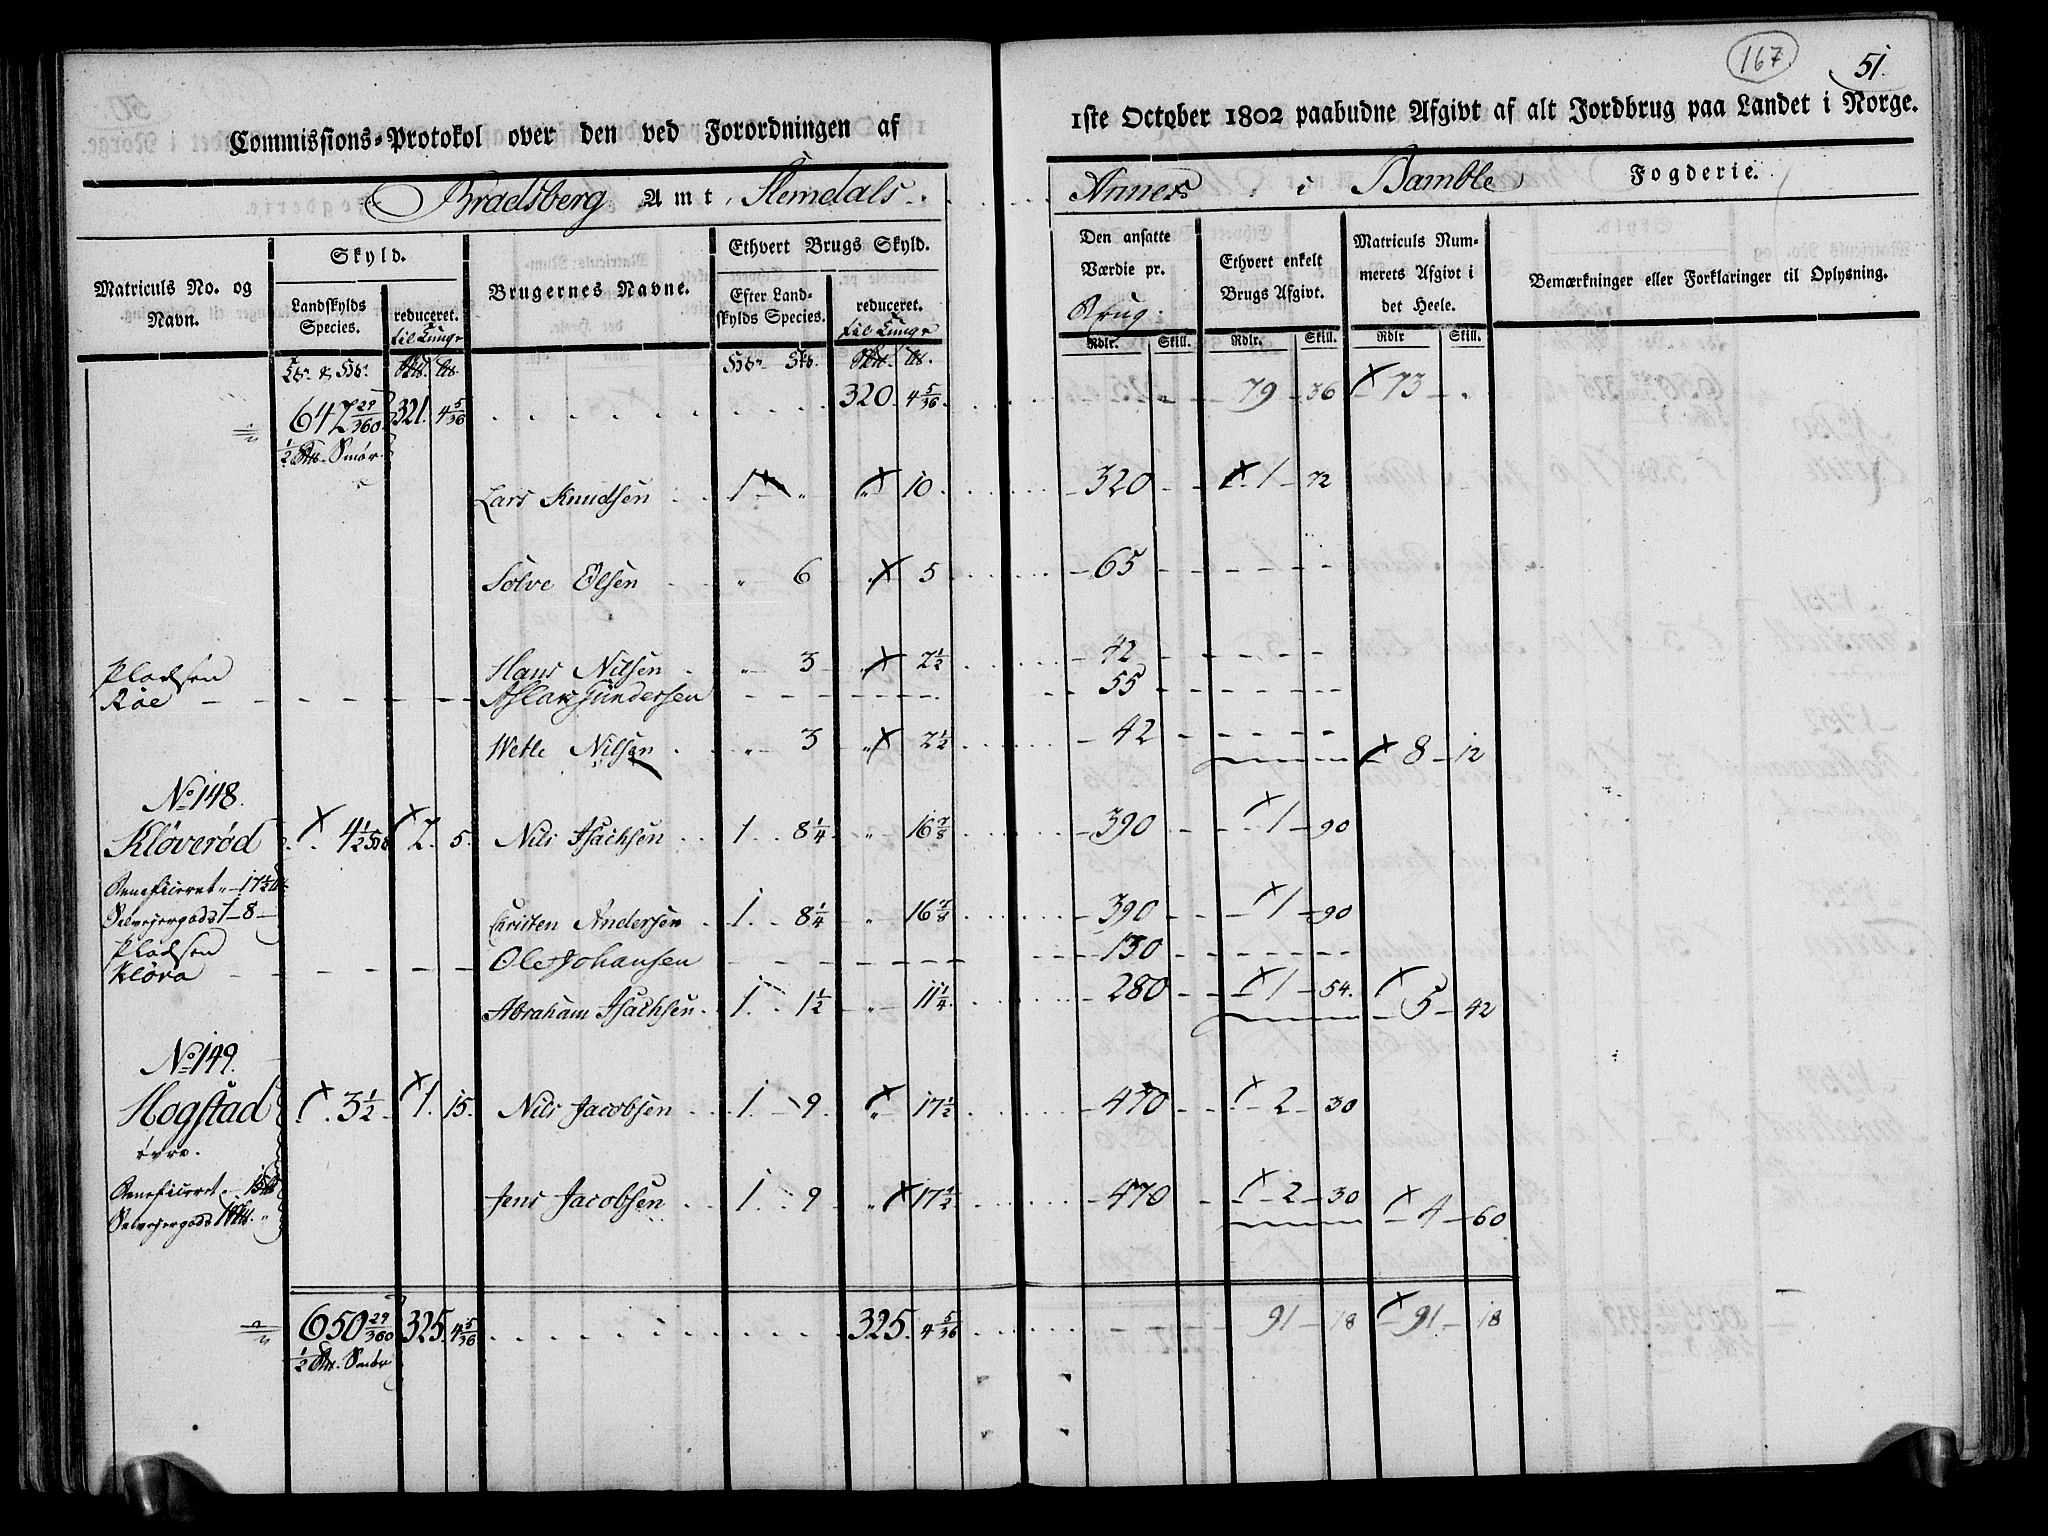 167
51.
Commissions-Protokol over den ved Forordningen af 1ste October 1802 paabudne Afgivt af alt Jordbrug paa Landet i Norge.
Bradsberg Amt, Slemdals Annex i Bamble Fogderie.
Matriculs No. og Navn.
Skyld.
Landskylds Species.
reduceret. til Tunge
Brugernes Navne.
Ethvert Brugs Skyld.
Efter Landskylds Species.
reduceret. til Tunge
Den ansatte Værdie pr. Brug.
Ethvert enkelt Brugs Afgivt.
Matriculs Nummerets Afgivt i det Heele.
Bemærkninger eller Forklaringer til Oplysning.
Rdlr. Skill. Rdlr. Skill. Rdlr Skill.
647 29/360 321. 4 5/36 320 4 5/36 79 36 73
1/2 Smør
Lars Knudsen 1 " " 10 320 1 72
Solve Olsen " 6 " 5 65
Pladsen Hans Nilsen " 3 " 2 1/2 42
Røe Aslak Gundersen 55
Wetle Nilsen " 3 " 2 1/2 42 8 12
No 148.
Kløverød 4 1/2 2. 5. Nils Isachsen 1. 8 1/4 " 16 7/8 390 1 90
Beneficeret " 17 1/2
Selvejergods 1 - 8 Christen Andersen 1. 8 1/4 " 16 7/8 390 1 90
Pladsen
Kløva Ole Johansen 130
Abraham Isachsen 1. 1 1/2 " 11 1/4 280 1 54. 5 42
No 149.
Hogstad 3 1/2 1. 15. Nils Jacobsen 1. 9 " 17 1/2 470 2 30
øvre.
Beneficeret 15
Selvejergods 1 Jens Jacobsen 1. 9 " 17 1/2 470 2 30 4 60
650 29/360 325. 4 5/36 325. 4 5/36 91 18 91 18
1/2 Smør